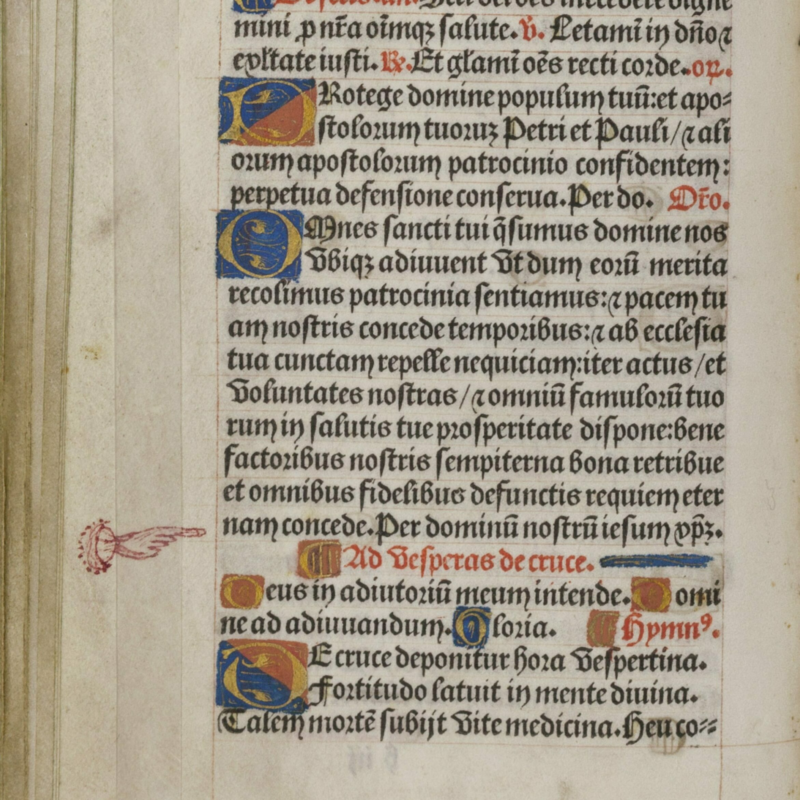 mini ꝓ nr̄a oīmqꝫ salute. v̄. Letamī in dn̄o ⁊
exltate iusti. ℟. Et glāmī oēs recti corde. or̄.
PRotege domine populum tuū: et apo⸗
stolorum tuoruꝫ Petri et Pauli / ⁊ ali
orum apostolorum patrocinio confidentem:
perpetua defensione conserua. Per do. Or̄o.
OMnes sancti tui q̄sumus domine nos
vbiqꝫ adiuuent vt dum eorū merita
recolimus patrocinia sentiamus: ⁊ pacem tu
am nostris concede temporibus: ⁊ ab ecclesia
tua cunctam repelle nequiciam: iter actus / et
voluntates nostras / ⁊ omniū famulorū tuo
rum in salutis tue prosperitate dispone: bene
factoribus nostris sempiterna bona retribue
et omnibus fidelibus defunctis requiem eter
nam concede. Per dominū nostrū iesum xp̄ꝫ.
¶ Ad vesperas de cruce.
Deus in adiutoriū meum intende. Domi
ne ad adiuuandum. Gloria. ¶ Hymnꝰ.
DE cruce deponitur hora vespertina.
Fortitudo latuit in mente diuina.
Talem mortē subijt vite medicina. Heu co⸗